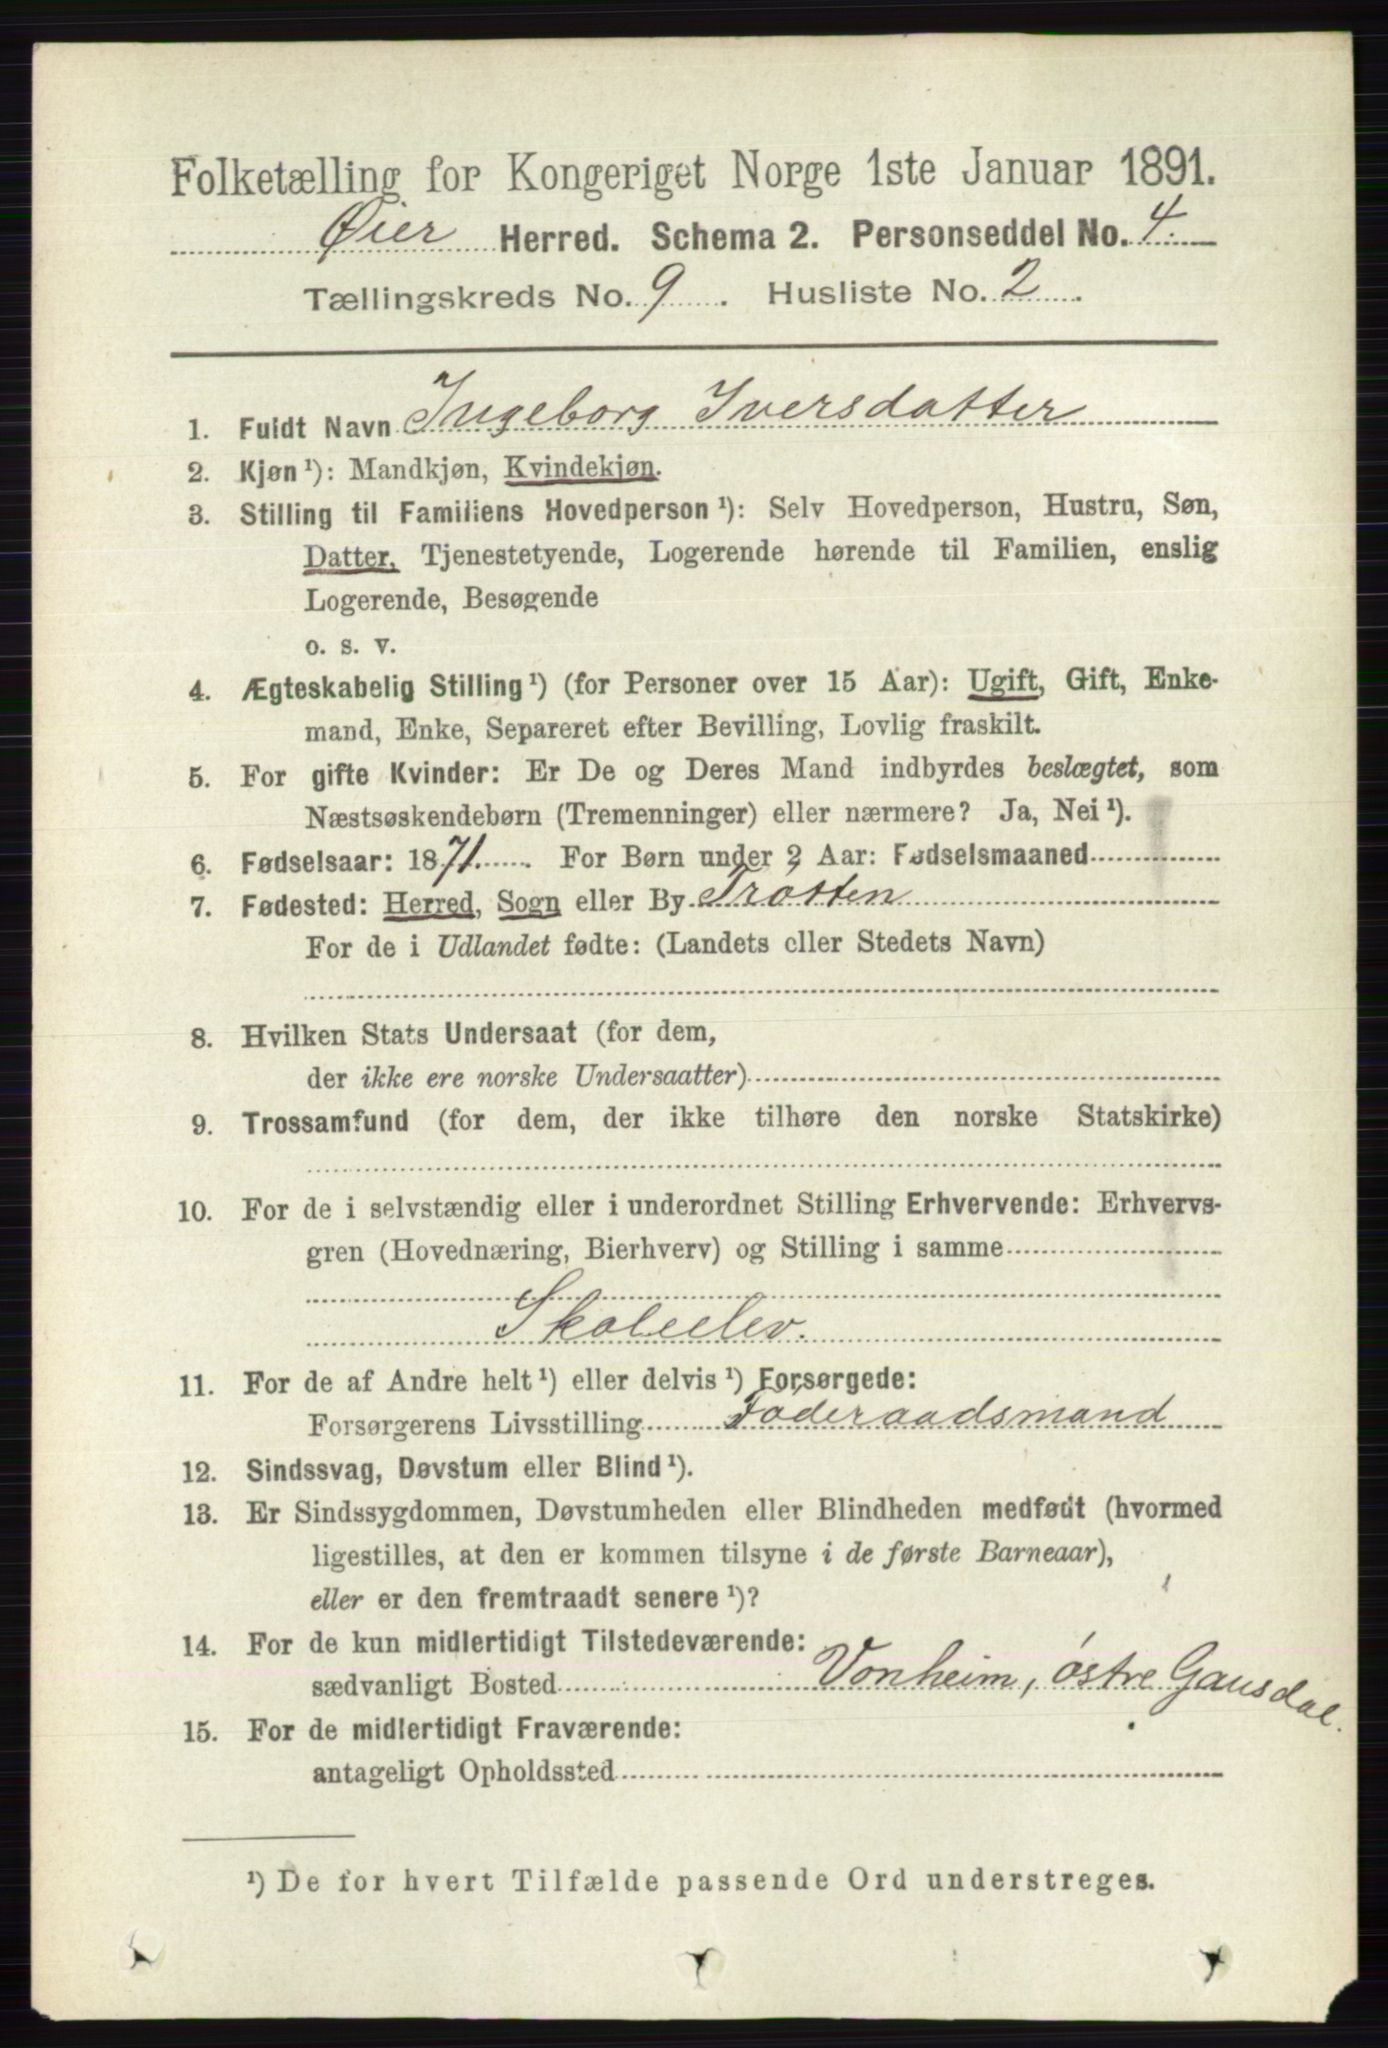 Folketælling for Kongeriget Norge 1ste Januar 1891.
Øier Herred. Schema 2. Personseddel No. 4.
Tællingskreds No. 9. Husliste No. 2.
1. Fuldt Navn Ingeborg Iversdatter
2. Kjøn ¹): Mandkjøn, Kvindekjøn.
3. Stilling til Familiens Hovedperson ¹): Selv Hovedperson, Hustru, Søn,
Datter, Tjenestetyende, Logerende hørende til Familien, enslig
Logerende, Besøgende
o. s. v.
4. Ægteskabelig Stilling ¹) (for Personer over 15 Aar): Ugift, Gift, Enke-
mand, Enke, Separeret efter Bevilling, Lovlig fraskilt.
5. For gifte Kvinder: Er De og Deres Mand indbyrdes beslægtet, som
Næstsøskendebørn (Tremenninger) eller nærmere? Ja, Nei ¹).
6. Fødselsaar: 1871. For Børn under 2 Aar: Fødselsmaaned
7. Fødested: Herred, Sogn eller By Trøtten
For de i Udlandet fødte: (Landets eller Stedets Navn)
8. Hvilken Stats Undersaat (for dem,
der ikke ere norske Undersaatter)
9. Trossamfund (for dem, der ikke tilhøre den norske Statskirke)
10. For de i selvstændig eller i underordnet Stilling Erhvervende: Erhvervs-
gren (Hovednæring, Bierhverv) og Stilling i samme
Skoleelev.
11. For de af Andre helt ¹) eller delvis ¹) Forsørgede:
Forsørgerens Livsstilling Føderaadsmand
12. Sindssvag, Døvstum eller Blind ¹).
13. Er Sindssygdommen, Døvstumheden eller Blindheden medfødt (hvormed
ligestilles, at den er kommen tilsyne i de første Barneaar),
eller er den fremtraadt senere ¹)?
14. For de kun midlertidigt Tilstedeværende:
sædvanligt Bosted Vonheim, østre Gausdal.
15. For de midlertidigt Fraværende:
antageligt Opholdssted
¹) De for hvert Tilfælde passende Ord understreges.